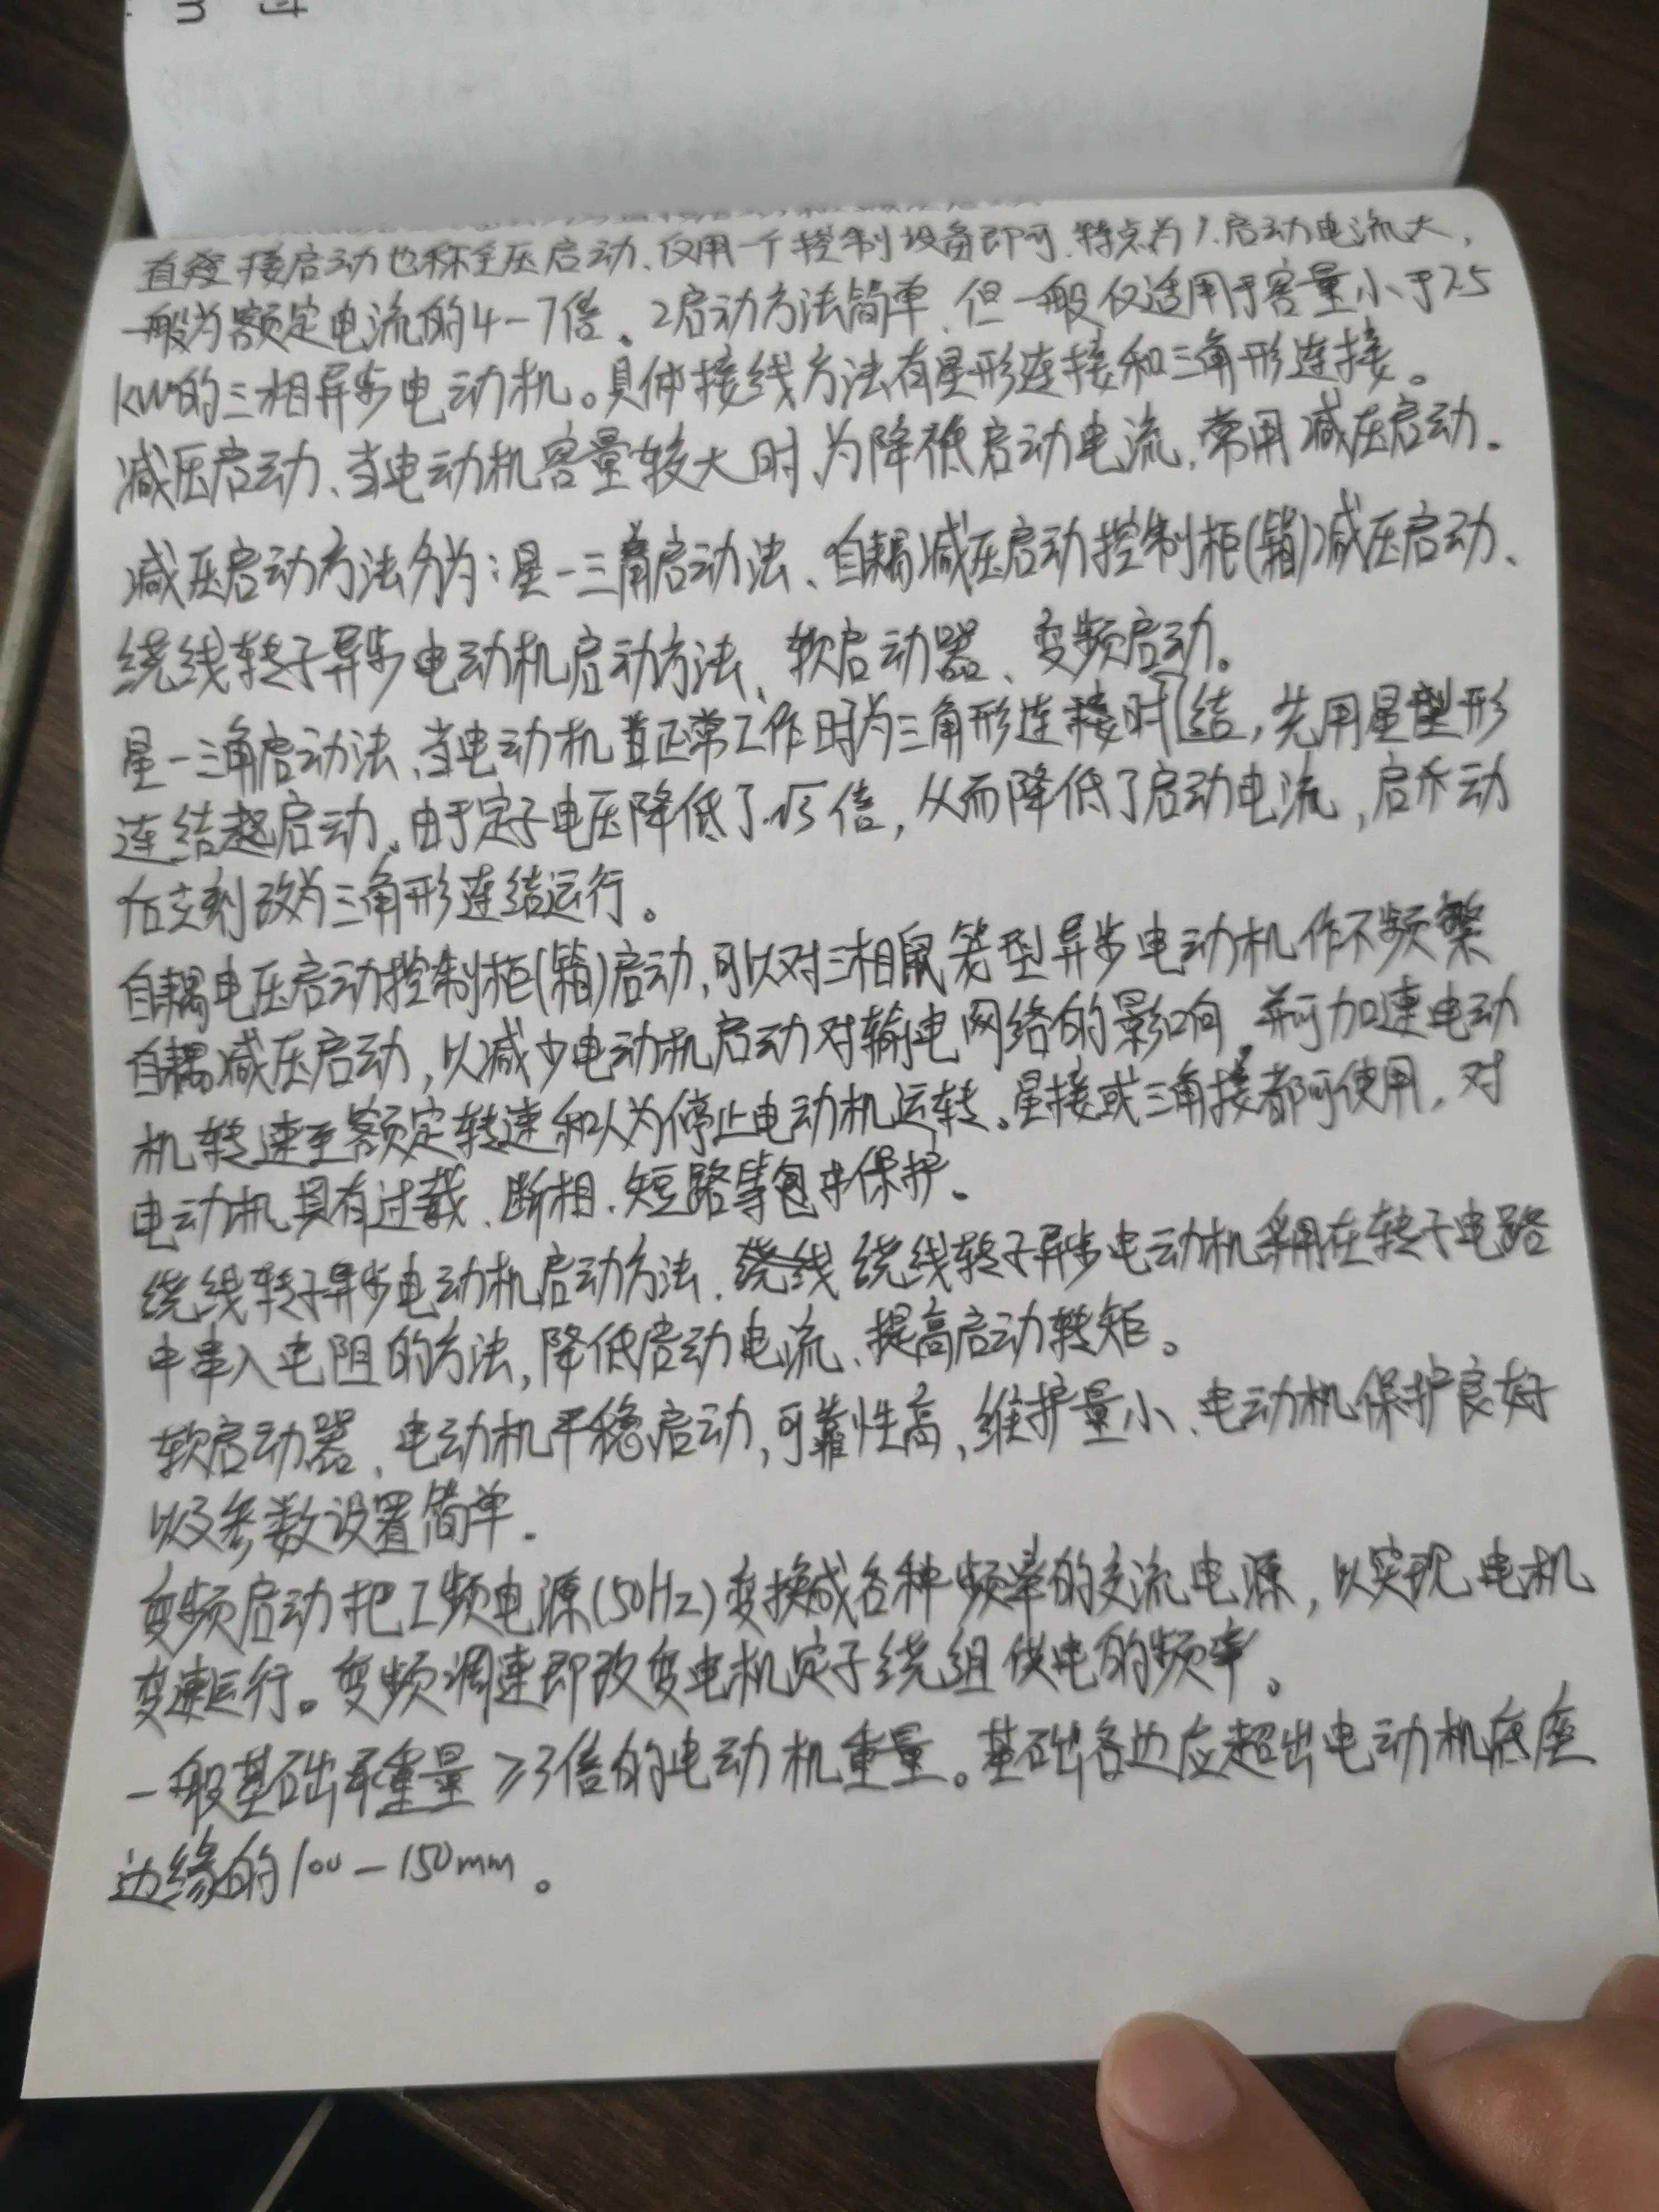 直接启动也称全压启动、仅用一个控制设备即可.特点为1.启动电流大,
一般为额定电流的4-7倍。2启动方法简单、但一般仅适用于容量小于7.5
kW的三相异步电动机。具体接线方法有星形连接和三角形连接。
减压启动、当电动机容量较大时、为降低启动电流,常用减压启动.
减压启动方法分为:星-三角启动法、自耦减压启动控制柜(箱)减压启动、
绕线转子异步电动机启动方法、软启动器、变频启动。
星-三角启动法、当电动机正常工作时为三角形连结,先用星形
连结起启动、由于定子电压降低了√3倍,从而降低了启动电流,启动
后立刻改为三角形连结运行。
自耦电压启动控制柜(箱)启动,可以对三相鼠笼型异步电动机作不频繁
自耦减压启动,以减少电动机启动对输电网络的影响,并可加速电动
机转速至额定转速和人为停止电动机运转。星接或三角接都可使用,对
电动机具有过载、断相、短路等保护。
绕线转子异步电动机启动方法.绕线转子异步电动机采用在转子电路
中串入电阻的方法,降低启动电流、提高启动转矩。
软启动器、电动机平稳启动,可靠性高、维护量小、电动机保护良好
以及参数设置简单.
变频启动把工频电源(50Hz)变换成各种频率的交流电源,以实现电机
变速运行。变频调速即改变电机定子绕组供电的频率。
一般基础重量≥3倍的电动机重量。基础各边应超出电动机底座
边缘的100-150mm。